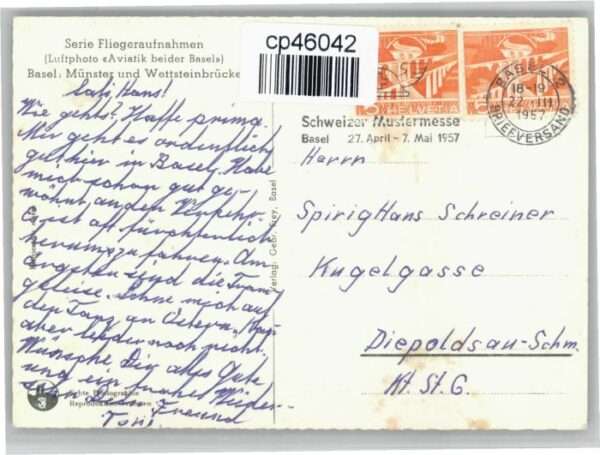 Serie Fliegeraufnahmen
(Luftphoto «Aviatik beider Basel»)
Basel: Münster und Wettsteinbrücke
cp46042
HELVETIA
HELVETIA
BASEL 2
18-19
22. III
1957
BRIEFVERSAND
Schweizer Mustermesse
Basel 27. April - 7. Mai 1957
Sali Hans!
Wie gehts? Hoffe prima.
Mir geht es ordentlich
gut hier in Basel. Habe
mich schon gut ge-
wöhnt an den Verkehr.
Es ist oft fürchterlich
herumzufahren. Am
sind die Tram
geleise. Sehne mich auf
den Tanz an Ostern,
aber leider noch nicht.
Wünsche Dir alles Gute
und ein frohes Wieder-
sehen Dein Freund
Toni
Verlag: Gebr. Frey, Basel
Echte Photographie
Reproduktion verboten
Herrn
Spirig Hans Schreiner
Kugelgasse
Diepoldsau-Schm.
Kt. St. G.